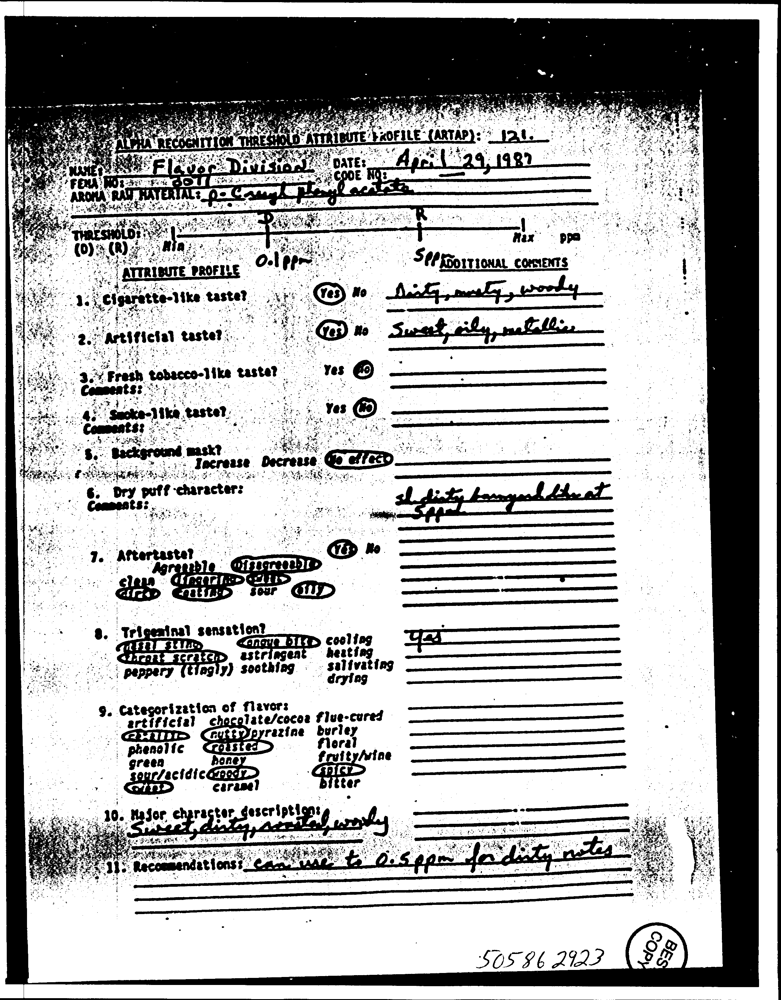 ALPHA RECOGNITION THRESHOLD ATTRIBUTE PROFILE (ARTAP): 121.
NAME: Flavor Division DATE: April 29, 1987
FEMA NO: CODE NO:
AROMA RAW MATERIAL: p-Cresyl phenyl acetate
D R
THRESHOLD: Min Max ppm
(D) (R)
0.1 ppm 5 pp
ATTRIBUTE PROFILE ADDITIONAL COMMENTS
1. Cigarette-like taste? Yes No Dirty, musty, woody
2. Artificial taste? Yes No Sweet, oily, metallic
3. Fresh tobacco-like taste? Yes No
Comments:
4. Smoke-like taste? Yes No
Comments:
5. Background mask?
Increase Decrease No effect
6. Dry puff character: sl. dirty barnyard at
Comments: 5 ppm
7. Aftertaste? Yes No
Agreeable Disagreeable
clean lingering sweet
dirty coating sour oily
8. Trigeminal sensation? yes
nasal sting tongue bite cooling
throat scratch astringent heating
peppery (tingly) soothing salivating
drying
9. Categorization of flavor:
artificial chocolate/cocoa flue-cured
metallic nutty/pyrazine burley
phenolic roasted floral
green honey fruity/wine
sour/acidic woody spicy
sweet caramel bitter
10. Major character description:
Sweet, dirty, roasted, woody
11. Recommendations: can use to 0.5 ppm for dirty notes
50586 2923
BES
COPY